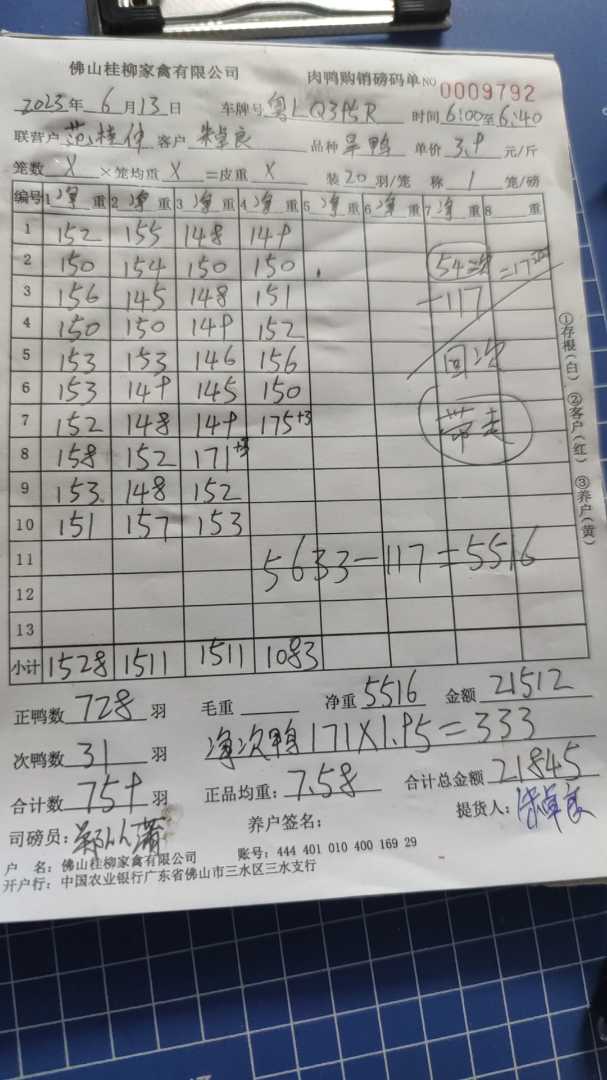 佛山桂柳家禽有限公司 肉鸭购销磅码单 NO 0009792
2023年 6 月 13 日 车牌号 粤LQ395R 时间 6:00至6:40
联营户 范桂仲 客户 朱卓良 品种 旱鸭 单价 3.9 元/斤
笼数 X ×笼均重 X =皮重 X 装 20 羽/笼 称 1 笼/磅
编号 1 净 重 2 净 重 3 净 重 4 净 重 5 净 重 6 净 重 7 净 重 8 重
1 152 155 148 149
2 150 154 150 150 54次 =17
3 156 145 148 151 -117
4 150 150 149 152
5 153 153 146 156 回次
6 153 149 145 150
7 152 148 149 175+3 带走
8 158 152 171+3
9 153 148 152
10 151 157 153
11 5633-117=5516
12
13
小计 1528 1511 1511 1083
①存根(白) ②客户(红) ③养户(黄)
正鸭数 728 羽 毛重 净重 5516 金额 21512
次鸭数 31 羽 净次鸭171X1.95=333
合计数 759 羽 正品均重: 7.58 合计总金额 21845
司磅员: 养户签名: 提货人: 朱卓良
户 名: 佛山桂柳家禽有限公司 账号: 444 401 010 400 169 29
开户行: 中国农业银行广东省佛山市三水区三水支行